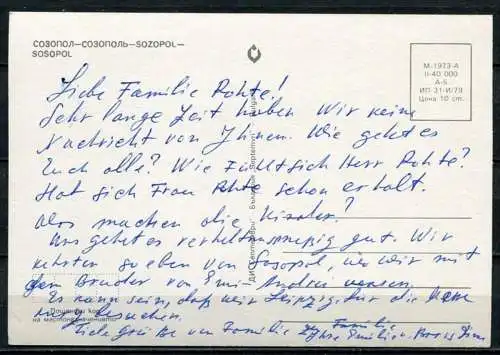 СОЗОПОЛ—СОЗОПОЛЬ—SOZOPOL—
SOSOPOL
М-1973-А
II-40 000
А-6
ИП 31-И/79
Цена 10 ст.
Liebe Familie Rohte!
Sehr lange Zeit haben Wir keine
Nachricht von Ihnen. Wie geht es
Euch alle? Wie fühlt sich Herr Rohte?
Hat sich Frau Rohte schon erholt.
Was machen die Kinder?
Uns geht es verhältnismäßig gut. Wir
kehrten soeben von Sosopol, wo wir mit
dem Bruder von Emi Andrei waren.
Es kann sein, daß wir Leipzig für die
besuchen.
Пощенски код
на местоназначението
Viele Grüße von Familie